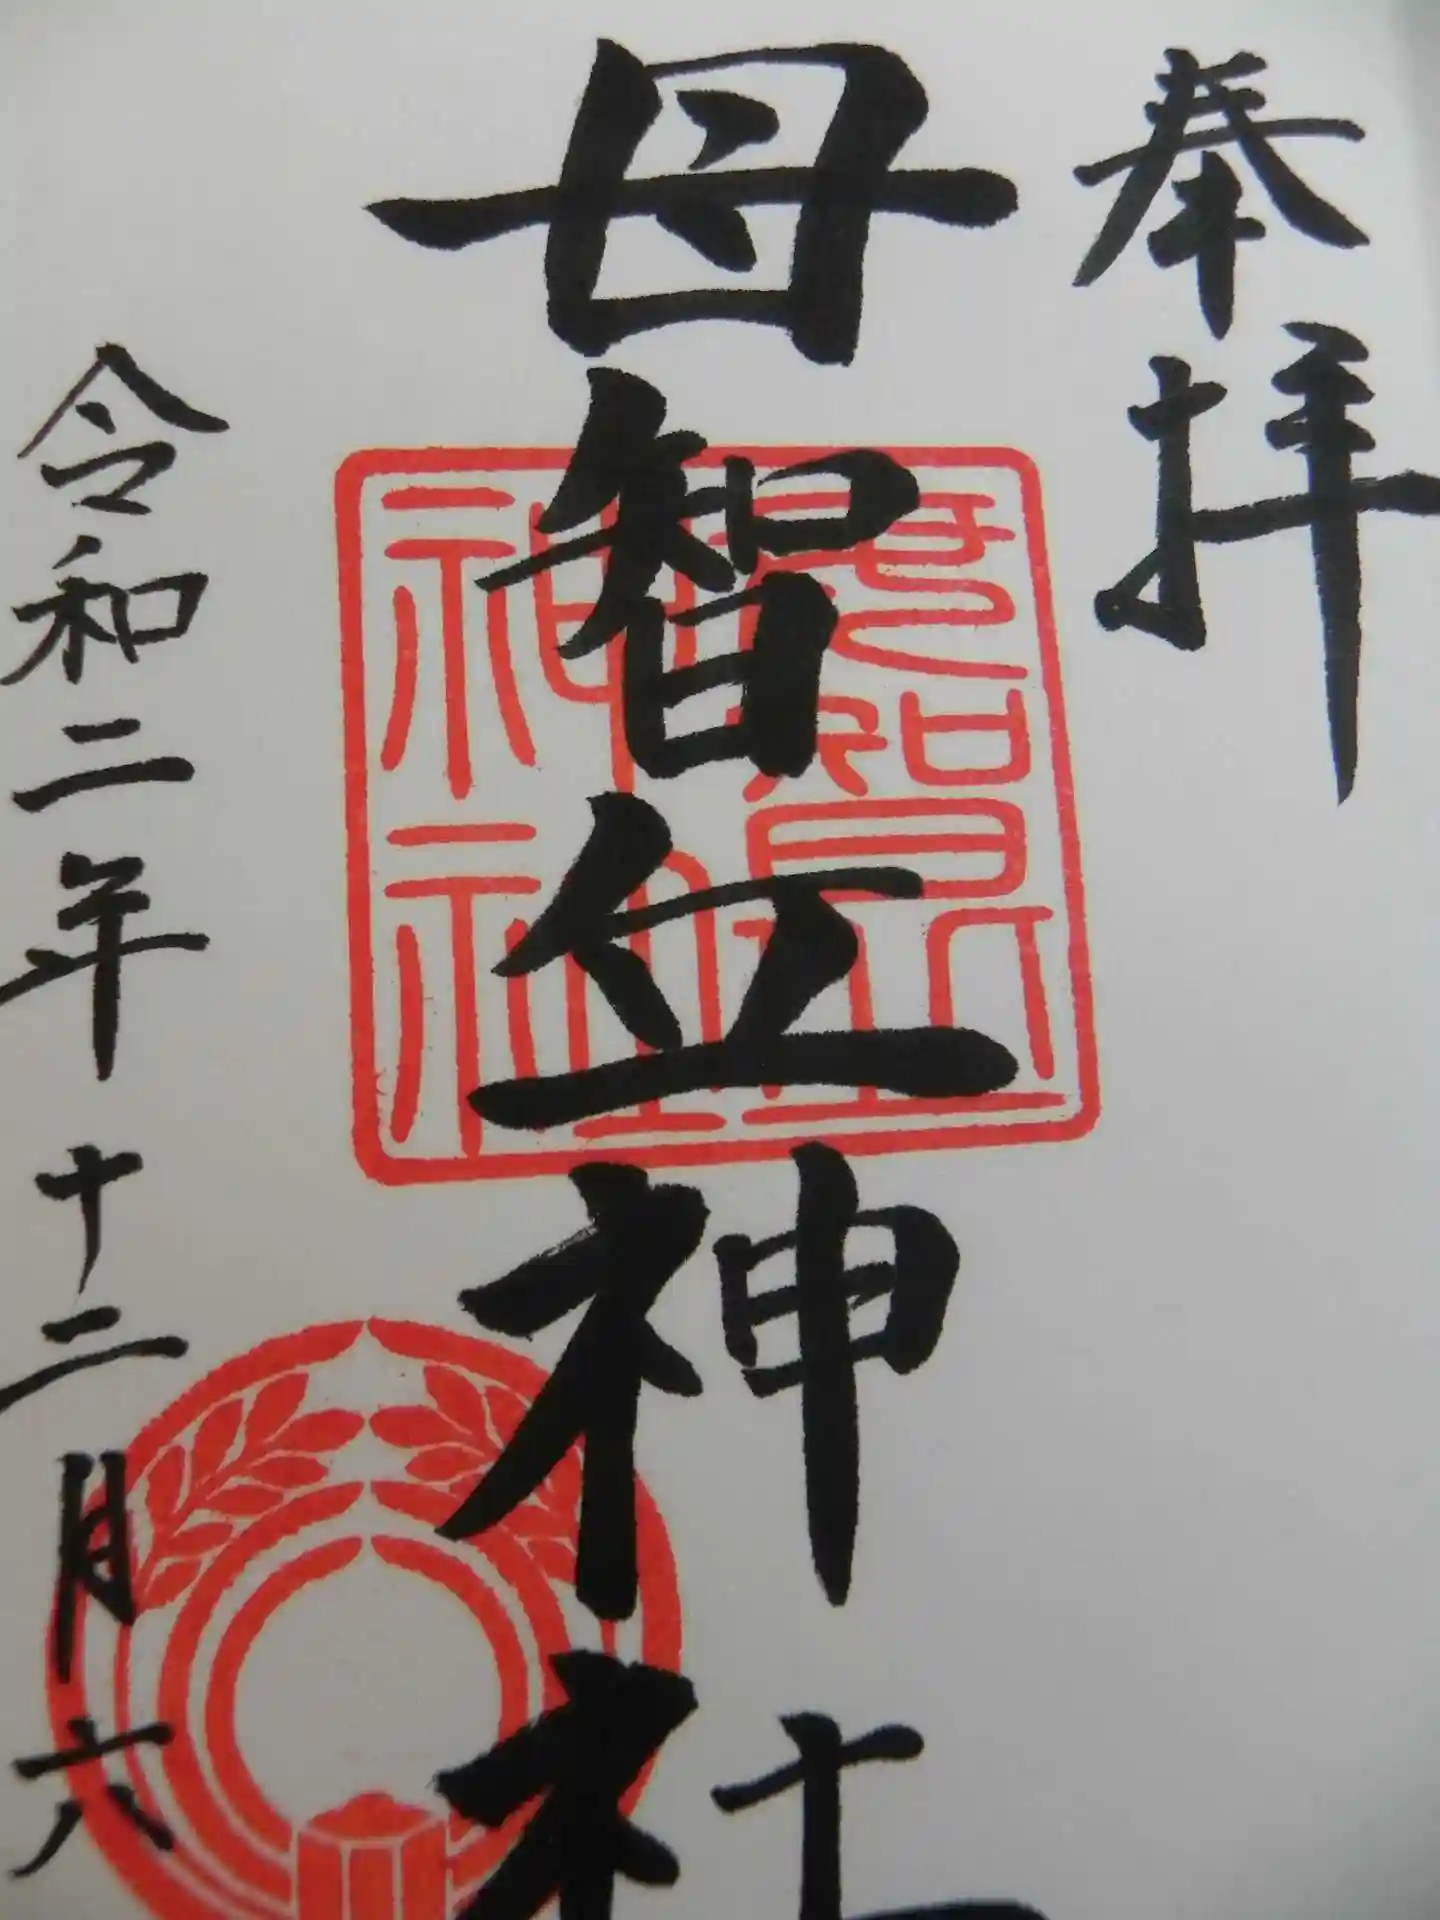 奉拝
母智丘神社
令和二年十二月六
智丘
神社